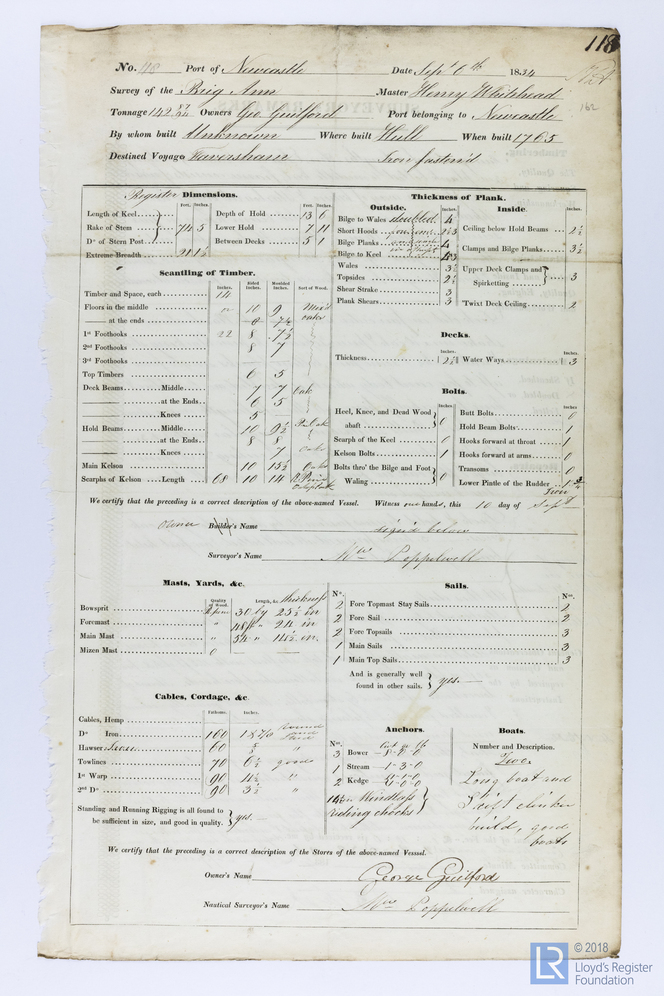 118
No. 118 Port of Newcastle Date Sept 6th 1834
Survey of the Brig Ann Master Henry Whitehead
162
Tonnage 142 87/94 Owners Geo Guilford Port belonging to Newcastle
By whom built Unknown Where built Hull When built 1765
Destined Voyage Faversham Iron fasten'd
Register Dimensions.
Feet. Inches.
Length of Keel
Rake of Stem 74 5
Do of Stern Post
Extreme Breadth 21 1½
Feet. Inches.
Depth of Hold 13 6
Lower Hold 7 11
Between Decks 5 1
Scantling of Timber.
Inches. Sided Inches. Moulded Inches. Sort of Wood.
Timber and Space, each 14
Floors in the middle 10 9
—— at the ends
1st Foothooks 22 8 7½
2nd Foothooks 8 7
3rd Foothooks
Top Timbers 6 5
Deck Beams Middle 7 7 Oak
—— at the Ends 6 5
—— Knees 5
Hold Beams Middle 10 9½
—— at the Ends 8 8
—— Knees 7 Oak
Main Kelson 10 15½ Oak
Scarphs of Kelson Length 68 10 14
Thickness of Plank.
Outside. Inches.
Bilge to Wales doubled 4
Short Hoods
Bilge Planks 4
Bilge to Keel
Wales 3½
Topsides 2½
Shear Strake 3
Plank Shears 3
Inside. Inches.
Ceiling below Hold Beams 2½
Clamps and Bilge Planks 3½
Upper Deck Clamps and Spirketting 3
Twixt Deck Ceiling 2
Decks.
Thickness 2½ Inches Water Ways 3 Inches
Bolts.
Inches
Heel, Knee, and Dead Wood abaft 0
Scarph of the Keel 0
Kelson Bolts 1
Bolts thro' the Bilge and Foot Waling 0
Inches
Butt Bolts 0
Hold Beam Bolts 1
Hooks forward at throat 1
Hooks forward at arms 0
Transoms 0
Lower Pintle of the Rudder
Iron
We certify that the preceding is a correct description of the above-named Vessel. Witness our hands, this 10 day of Sept
Owner Builder's Name sign'd below
Surveyor's Name Wm Poppelwell
Masts, Yards, &c.
Quality of Wood. Length, &c. thickness
Bowsprit 30 by 23½ in
Foremast " 48 " 21 in
Main Mast " 54 " 14½ in
Mizen Mast 0 ——
Sails.
No. No.
2 Fore Topmast Stay Sails 2
2 Fore Sail 2
2 Fore Topsails 3
1 Main Sails 3
1 Main Top Sails 3
And is generally well found in other sails. yes. —
Cables, Cordage, &c.
Fathoms. Inches.
Cables, Hemp
Do Iron 160
Hawser Iron 60
Towlines 70 6½ good
1st Warp 90 4½ "
2nd Do 90 3½ "
Standing and Running Rigging is all found to be sufficient in size, and good in quality. yes. —
Anchors.
No.
3 Bower
1 Stream 1-3-0
2 Kedge
Windlass
riding chocks
Boats.
Number and Description.
Two.
Long boat and
1 clinker
build, good
boats
We certify that the preceding is a correct description of the Stores of the above-named Vessel.
Owner's Name George Guilford
Nautical Surveyor's Name Wm Poppelwell
LR
© 2018
Lloyd's Register
Foundation